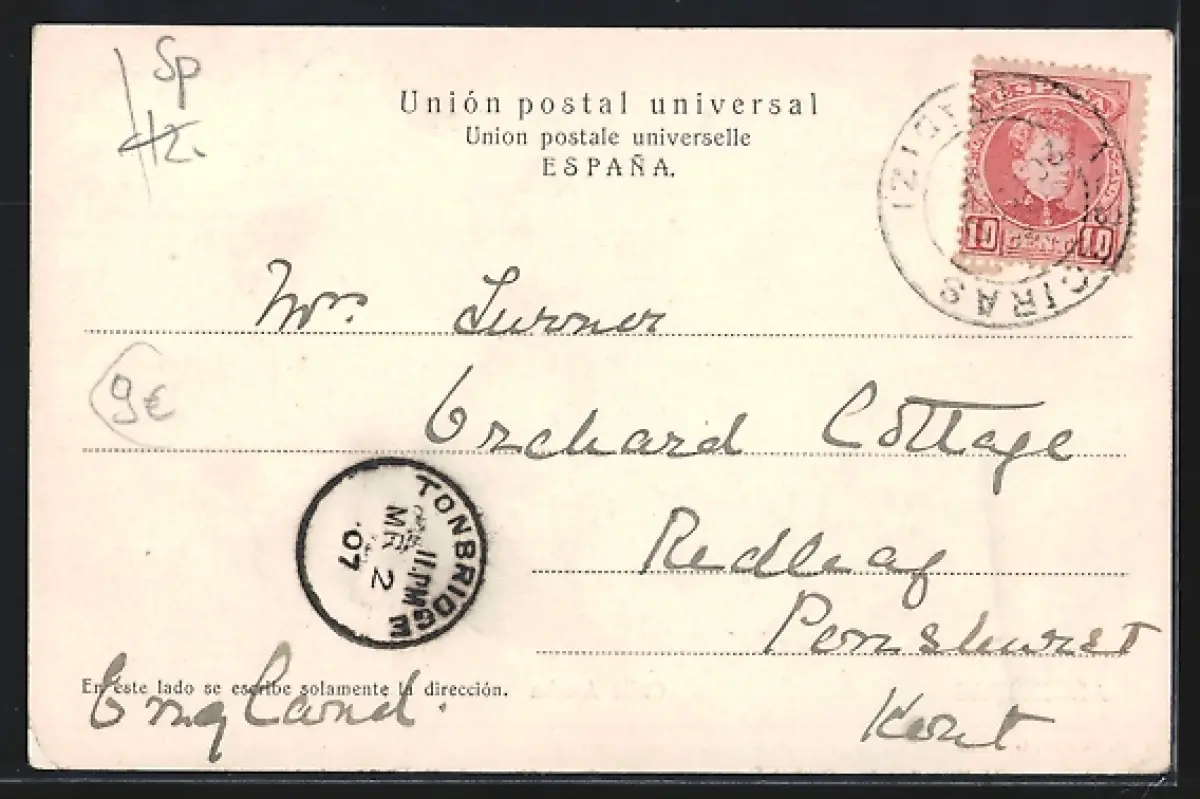 Sp
Unión postal universal
Union postale universelle
ESPAÑA.
ESPAÑA
10 CENT. 10
CIRAS
Mrs. Turner
9€
Orchard Cottage
TONBRIDGE
11.PM
MR 2
07
Redleaf
Penshurst
En este lado se escribe solamente la dirección.
England.
Kent